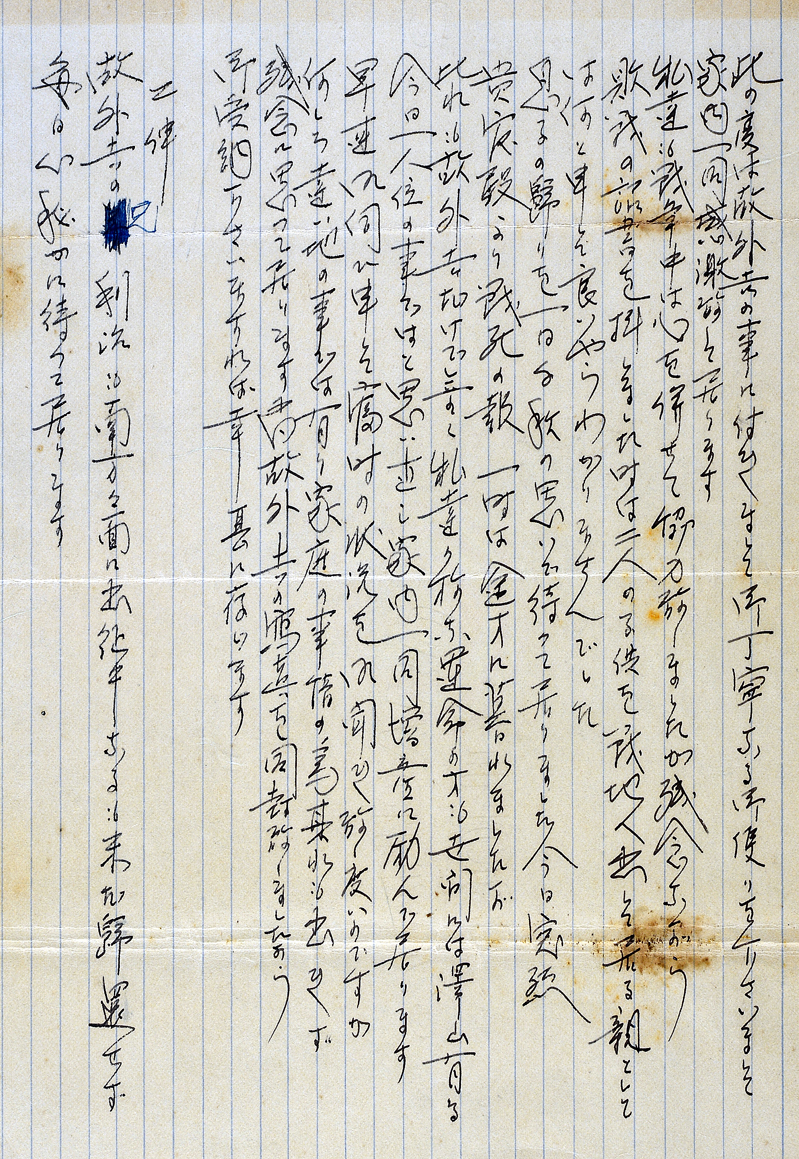 此の度は故外吉の事に付きまして御丁寧なる御便りを下さいまして
家内一同感激致して居ります
私達も戦争中は心を併せて協力致しましたが残念ながら
敗戦の詔書を拝しました時は二人の子供を戦地へ出して居る親として
は何と申して良いやらわかりませんでした
息子の帰りを一日千秋の思いで待って居りました今日突然
貴官殿より戦死の報 一時は全才に暮れましたが
此れも故外吉だけで無く私達の様な運命の方も世間には澤山有る
今日一人位の事ではと思い直し家内一同増産に励んで居ります
早速御伺ひ申して當時の状況を御聞き致し度いのですが
何しろ遠い地の事では有り家庭の事情の為其れも出来ず
残念に思って居ります 尚故外吉の寫真を同封致しましたから
御受納下さいますれば幸甚に存じます
二伸
故外吉の兄 利治も南方方面に出征中なるも未だ歸還せず
毎日心秘かに待って居ります